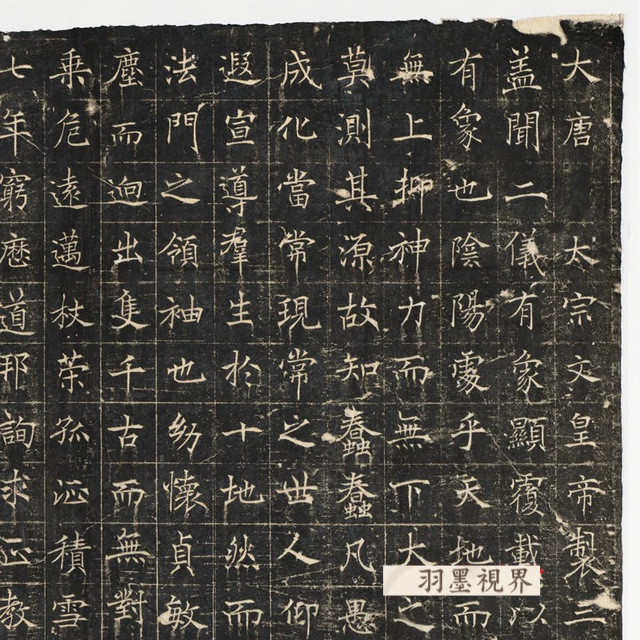 大唐 太宗文皇帝製三
盖聞二儀有象顯覆載以
有象也陰陽處乎天地而
無上抑神力而無下大之
莫測其源故知蠢蠢凡愚
成化當常現常之世人仰
遐宣導羣生於十地然而
法門之領袖也幼懷貞敏
塵而迥出隻千古而無對
乗危遠邁杖策孤征積雪
七年窮歷道邦詢求正教
羽墨視界